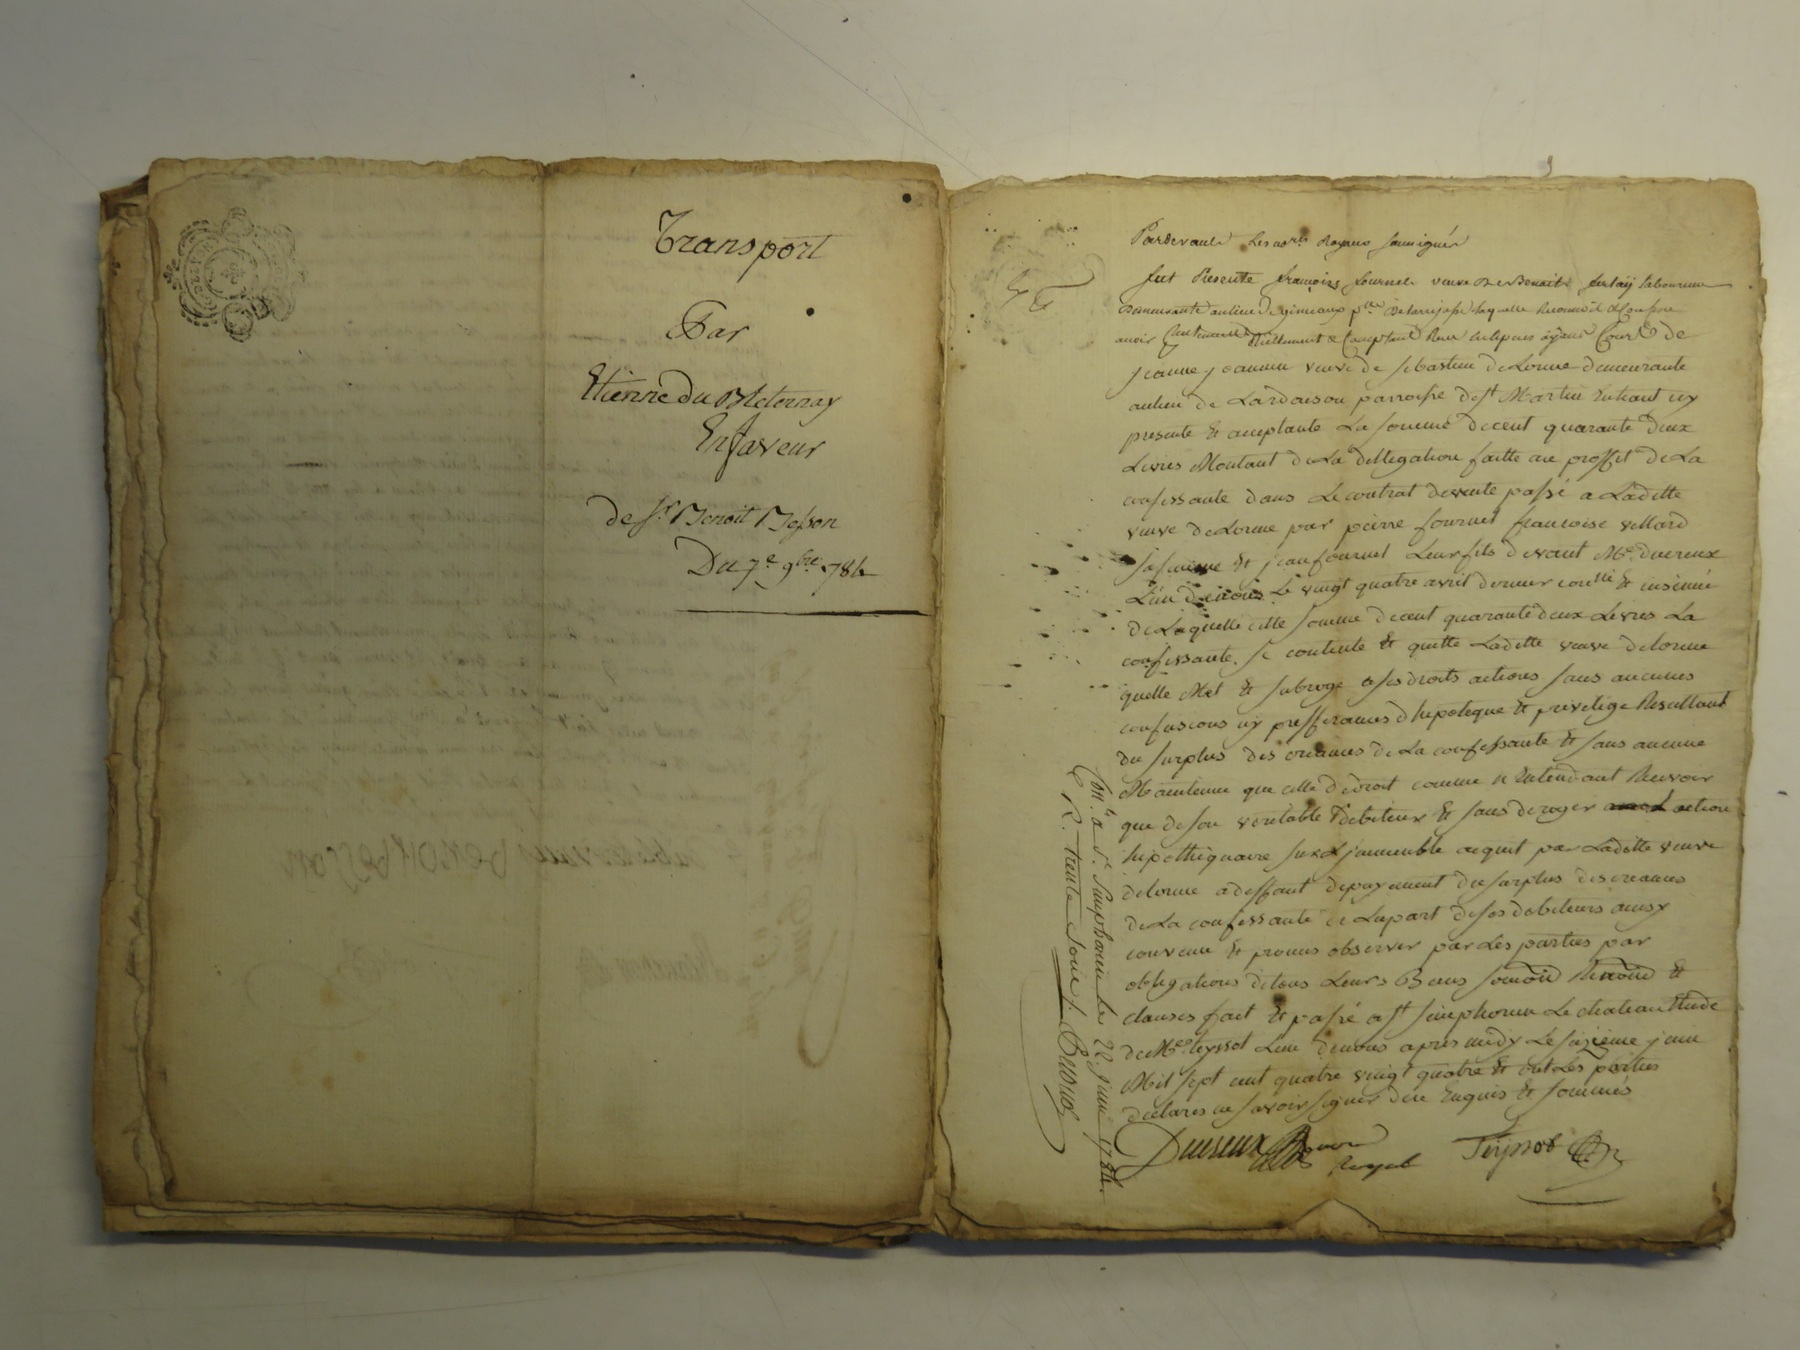 Transport
Par
Etienne du
Enfaveur
de Sr Benoit Besson
Du 7e 9bre 1784
Pardevant les nores Royaux soussignés
fut Presente françoise fournel veuve De Benoit laboureur
Demeurante aulieu de laquelle Reconnoit & Confesse
avoir Reellement & Comptant Receu en especes ayant Cours de
jeanne jeannin veuve de sebastien deLorme demeurante
aulieu de Lardaison parroisse de St Martin
presente & aceptante La somme de cent quarante deux
Livres Montant de La dellegation faitte au proffit de La
confessante dans Le contrat de vente passé a Laditte
veuve deLorme par pierre fournel françoise villard
sa femme & jean fournel Leur fils devant Me ducreux
L'un de nous Le vingt quatre avril dernier conllé & insinué
de Laquelle ditte somme de cent quarante deux Livres La
confessante se contente & quitte Laditte veuve delorme
quelle Met & subroge a ses droits actions sans aucunes
confusions ny prefferances d hipoteque & privilege Resultant
du surplus des creances de La confessante & sans aucune
Maintenue que celle de droit comme n Entendant Recevoir
que de son veritable debiteur & sans deroger a action
hipothequaire sur L'jmmeuble acquit par Laditte veuve
delorme a deffaut depayement du surplus des creances
de La confessante de Lapart de ses debiteurs ainsy
convenu & promis observer par Les parties par
obligations de tous Leurs Biens &
clauses fait & passé a St simphorien Le chateau Etude
de Me teyssot L'un de nous apres midy Le sizieme juin
Mil sept cent quatre vingt quatre & ont Les parties
declarés ne savoir signer de ce Enquis & sommés
Ducreux
Royal
Teyssot
Con.lé a St. Simphorien le 22 juin 1784.
R. trente Sous